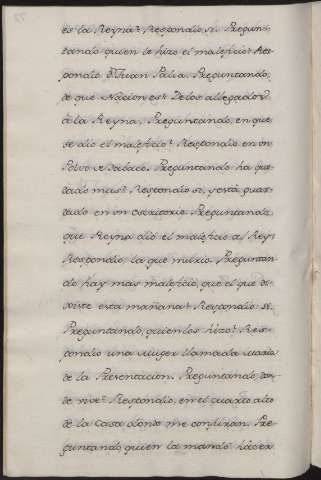 es la Reyna? Respondio si. Pregun-
tando quien le hizo el maleficio? Res-
pondio Dn Juan Palia. Preguntando,
de que Nacion es? De los allegados
â la Reyna. Preguntando, en que
se dio el maleficio? Respondio en un
Polvo de Tabaco. Preguntando ha que-
dado mas? Respondio si, y está guar-
dado en un escritorio. Preguntando,
que Reyna dió el maleficio al Rey?
Respondio, la que murio. Preguntan-
do hay mas maleficio, que el que di-
xiste esta mañana? Respondio: si.
Preguntando, quien los hizo? Res-
pondio una Muger llamada Maria
de la Presentacion. Preguntando, don-
de vive? Respondio, en el quarto alto
de la casa donde me conjuran. Pre-
guntando quien la mandó hacer